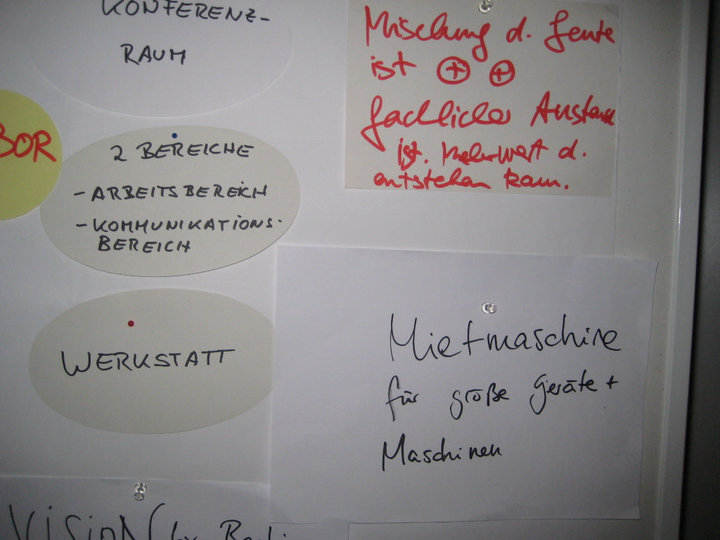 KONFERENZ-
RAUM
BOR
2 BEREICHE
- ARBEITSBEREICH
- KOMMUNIKATIONS-
BEREICH
WERKSTATT
Mischung d. Leute
ist + +
fachlicher Austausch
ist. Mehrwert d.
entstehen kann.
Mietmaschine
für große Geräte +
Maschinen
VISION